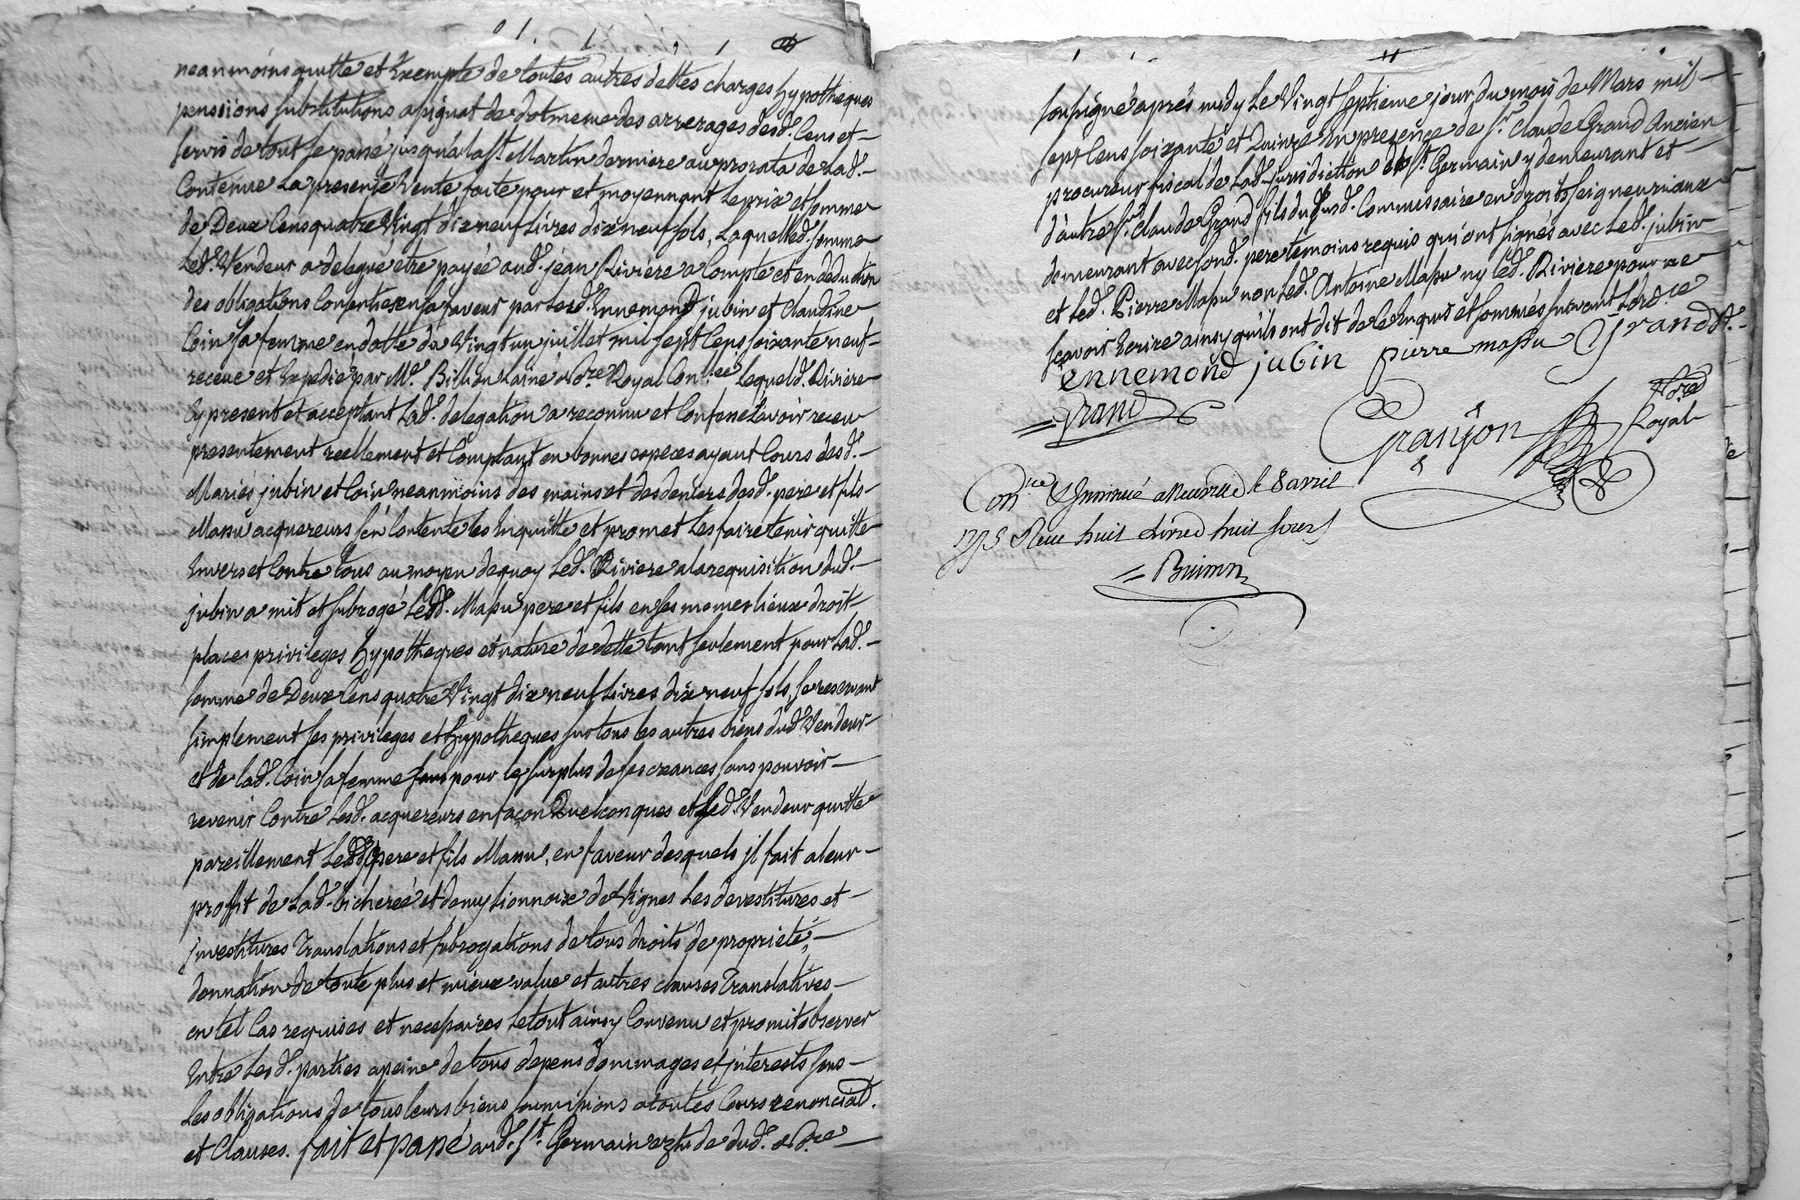 neanmoins quitte et Exempte de toutes autres dettes charges hypotheques
pensions substitutions apignat de dot meme des arrerages desd. Cens et
servis de tout le passé jusqu'a la st. Martin derniere au prorata de Lad.
Contenue La presente Vente faite pour et moyennant Le prix et somme
de Deux Cens quatre Vingt dix neuf Livres dix neuf sols, Laquelle d. somme
Led. Vendeur a delegué etre payée aud. jean Riviere a Compte et en deduction
des obligations Consenties en sa faveur par Lesd. Ennemond jubin et Claudine
Coin sa femme en datte du Vingt un juillet mil sept Cens soixante neuf
receue et Expedié par Me. Billion laîné Nore. Royal Con.lée Lequel d. Riviere
Cy present et acceptant Lad. delegation a reconnu et Confessé avoir receu
presentement reellement et Comptant en bonnes especes ayant Cours desd.
Mariés jubin et Coin neanmoins des mains et des deniers desd. pere et fils
Massu acquereurs s'en Contente Les Enquitte et promet Les faire tenir quitte
Envers et Contre tous au moyen de quoy Led. Riviere a la requisition dud.
jubin a mit et subrogé Lesd. Massu pere et fils en ses memes lieux droit
place privileges hypotheques et nature de dette tant seulement pour Lad.
somme de Deux Cens quatre Vingt dix neuf Livres dix neuf sols, se reservant
simplement ses privileges et hypotheques sur tous les autres biens dud. Vendeur
et de lad. Coin sa femme pour le surplus de ses creances sans pouvoir
revenir Contre Lesd. acquereurs en façon Quelconques et Led. Vendeur quitte
pareillement Lesd. pere et fils Massu, en faveur desquels jl fait a leur
proffit de Lad. bicherée et demy Lionnoise de Vignes Les devestitures et
jnvestitures Translations et subrogations de tous droits de proprieté,
donnation de toute plus et mieux value et autres clauses Translatives
en tel Cas requises et necessaires Le tout ainsy Convenu et promit observer
Entre Lesd. parties a peine de tous depens dommages et jnterests sous
Les obligations de tous leurs biens soumissions a toutes Cours renonciat.
et Clauses. fait et passé aud. st. Germain Etude dud. Nore.
soussigné après midy Le Vingt septieme jour du mois de Mars mil
sept Cens soixante et Quinze En presence de sr. Claude Grand Ancien
procureur fiscal de Lad. Jurisdiction de st. Germain y demeurant et
d'autre sr. Claude Grand fils du susd. Commissaire en droits seigneuriaux
demeurant avec sond. pere temoins requis qui ont signés avec Led. jubin
et Led. Pierre Massu non Led. Antoine Massu ny Led. Riviere pour ne
sçavoir Ecrire ainsy qu'ils ont dit de ce Enquis et sommés suivant Lord.ce
ennemond jubin pierre massu Grand
Grand
Granjon Nore.
Royal
Con.lée & Jnsinué a Neuville le 8 avril
1775 Reçu huit Livres huit sous
Buirin